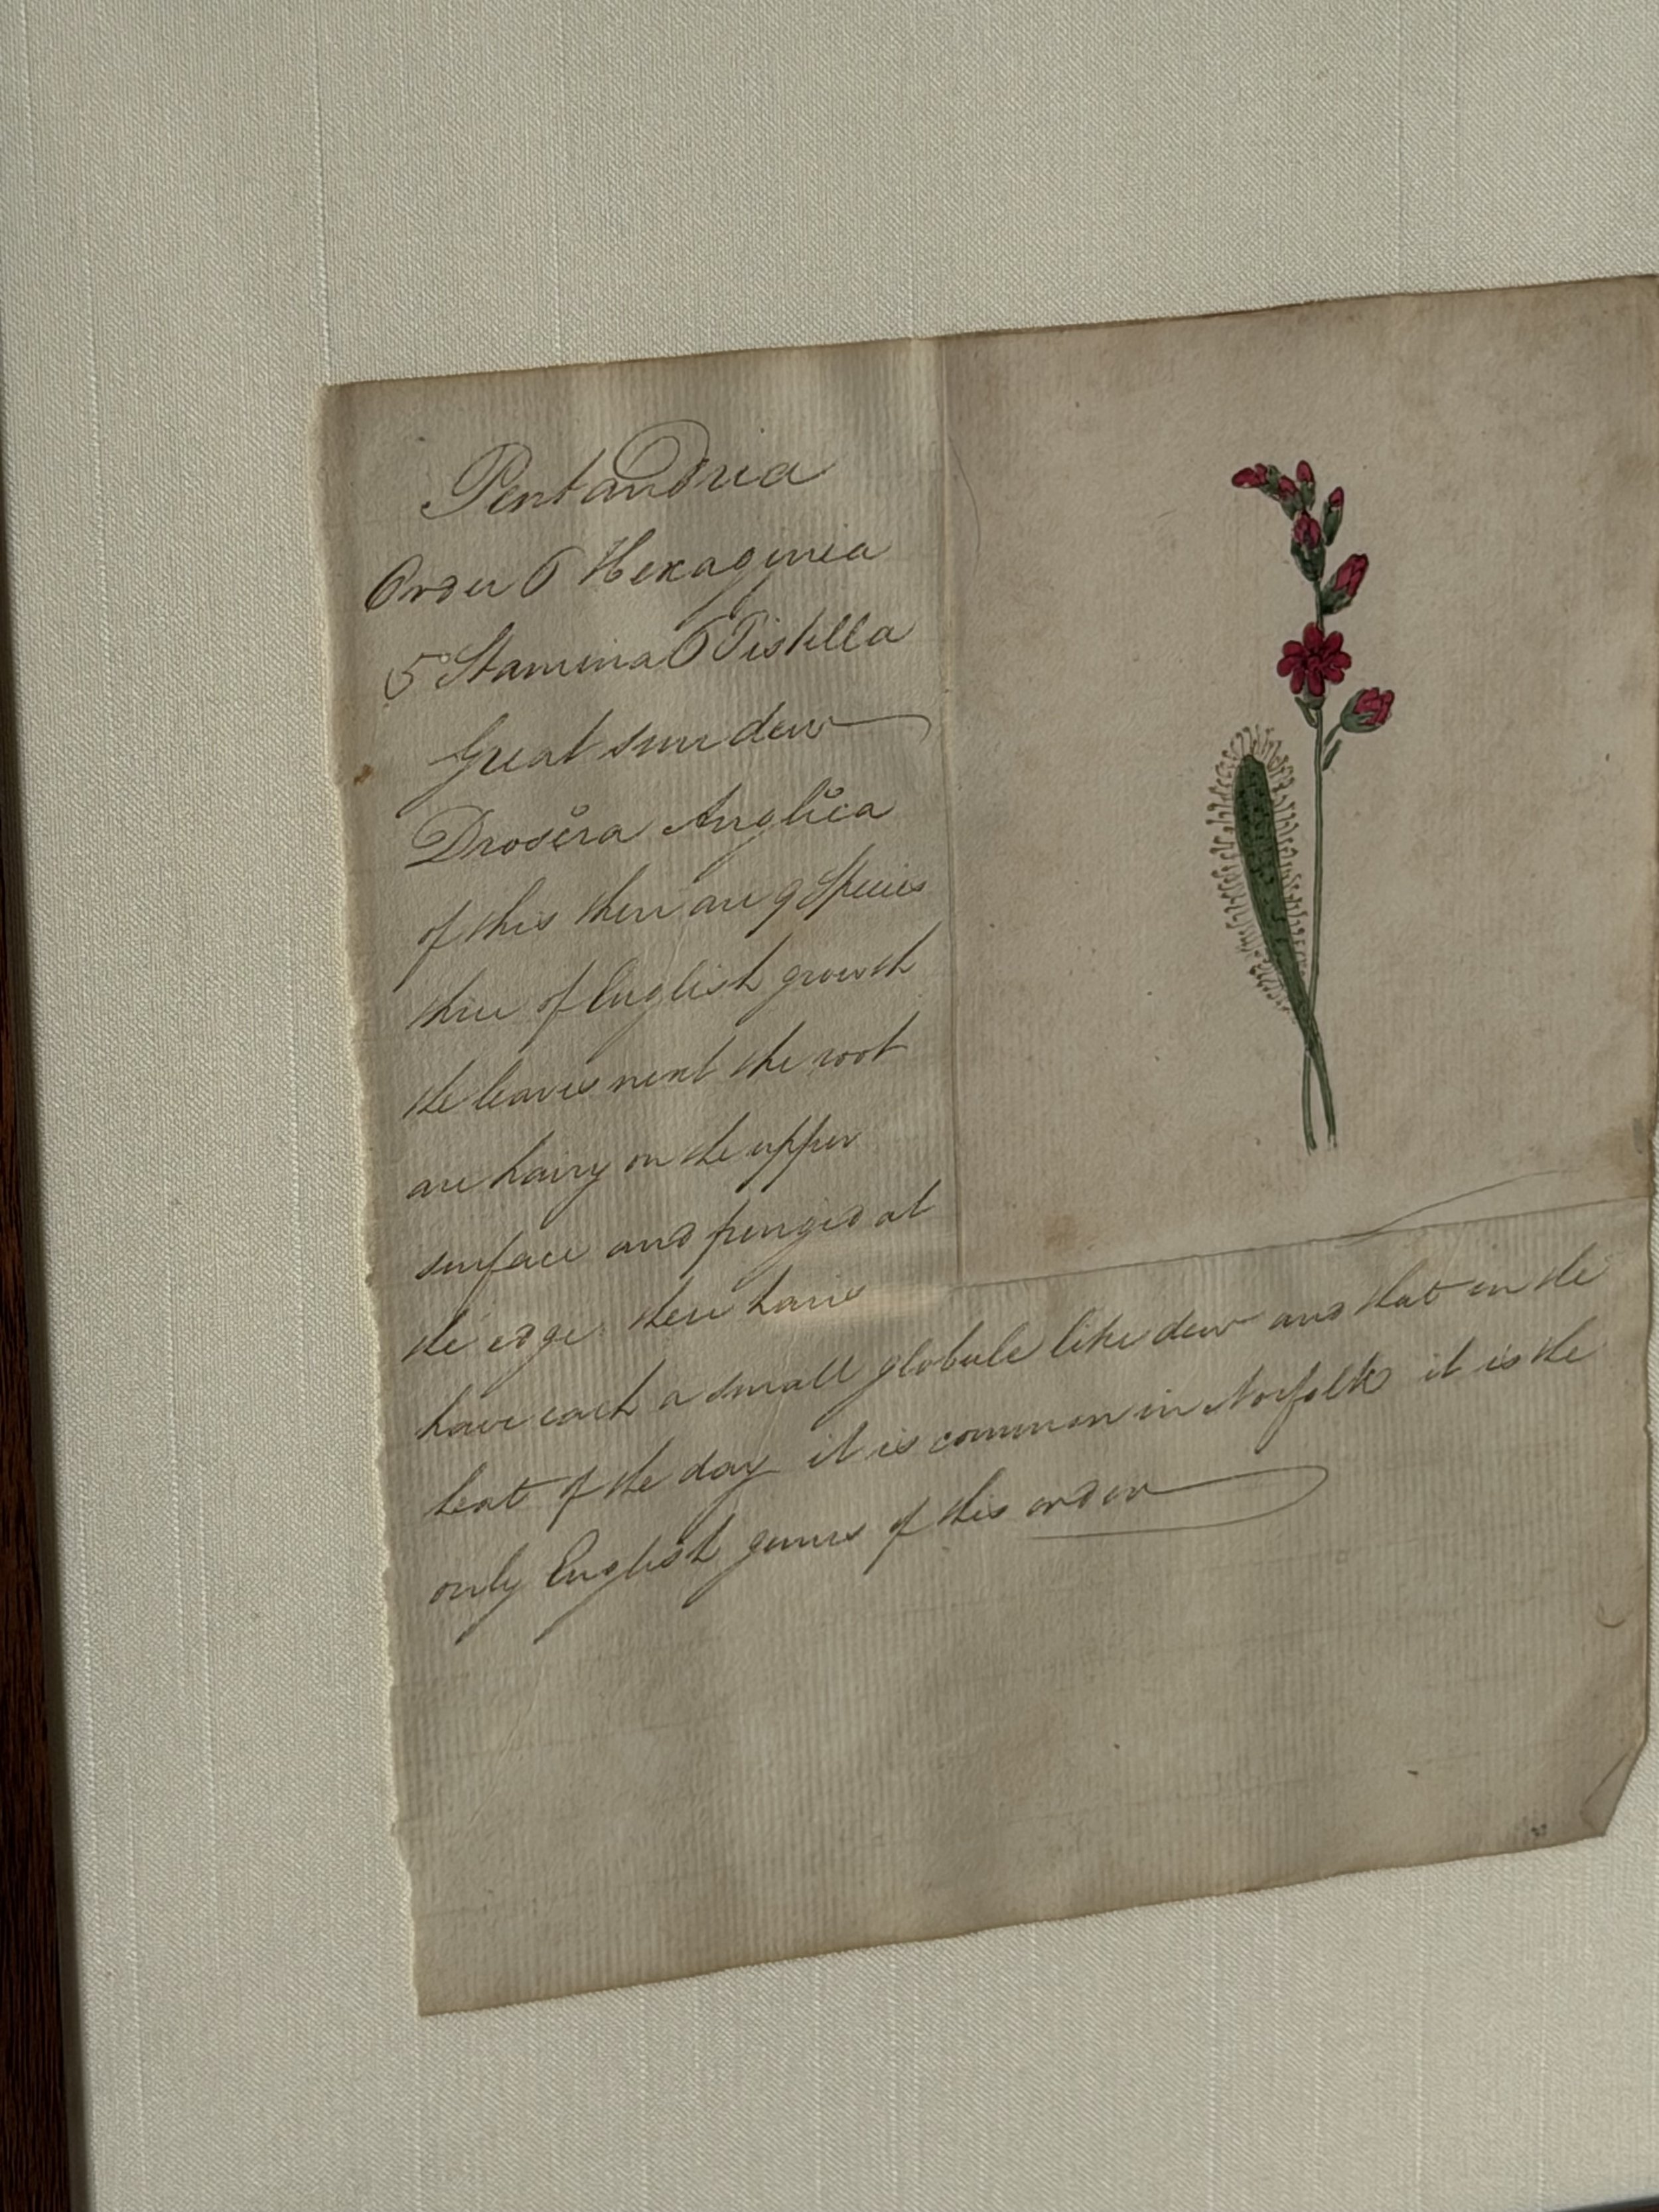 Pentandria
Order 6 Hexaginia
5 Stamina 6 Pistilla
Great sun dew
Drosera Anglica
of this there are 9 Species
three of English growth
the leaves next the root
are hairy on the upper
surface and fringed at
the edge these hairs
have each a small globule like dew and that in the
heat of the day it is common in Norfolk it is the
only English genus of this order